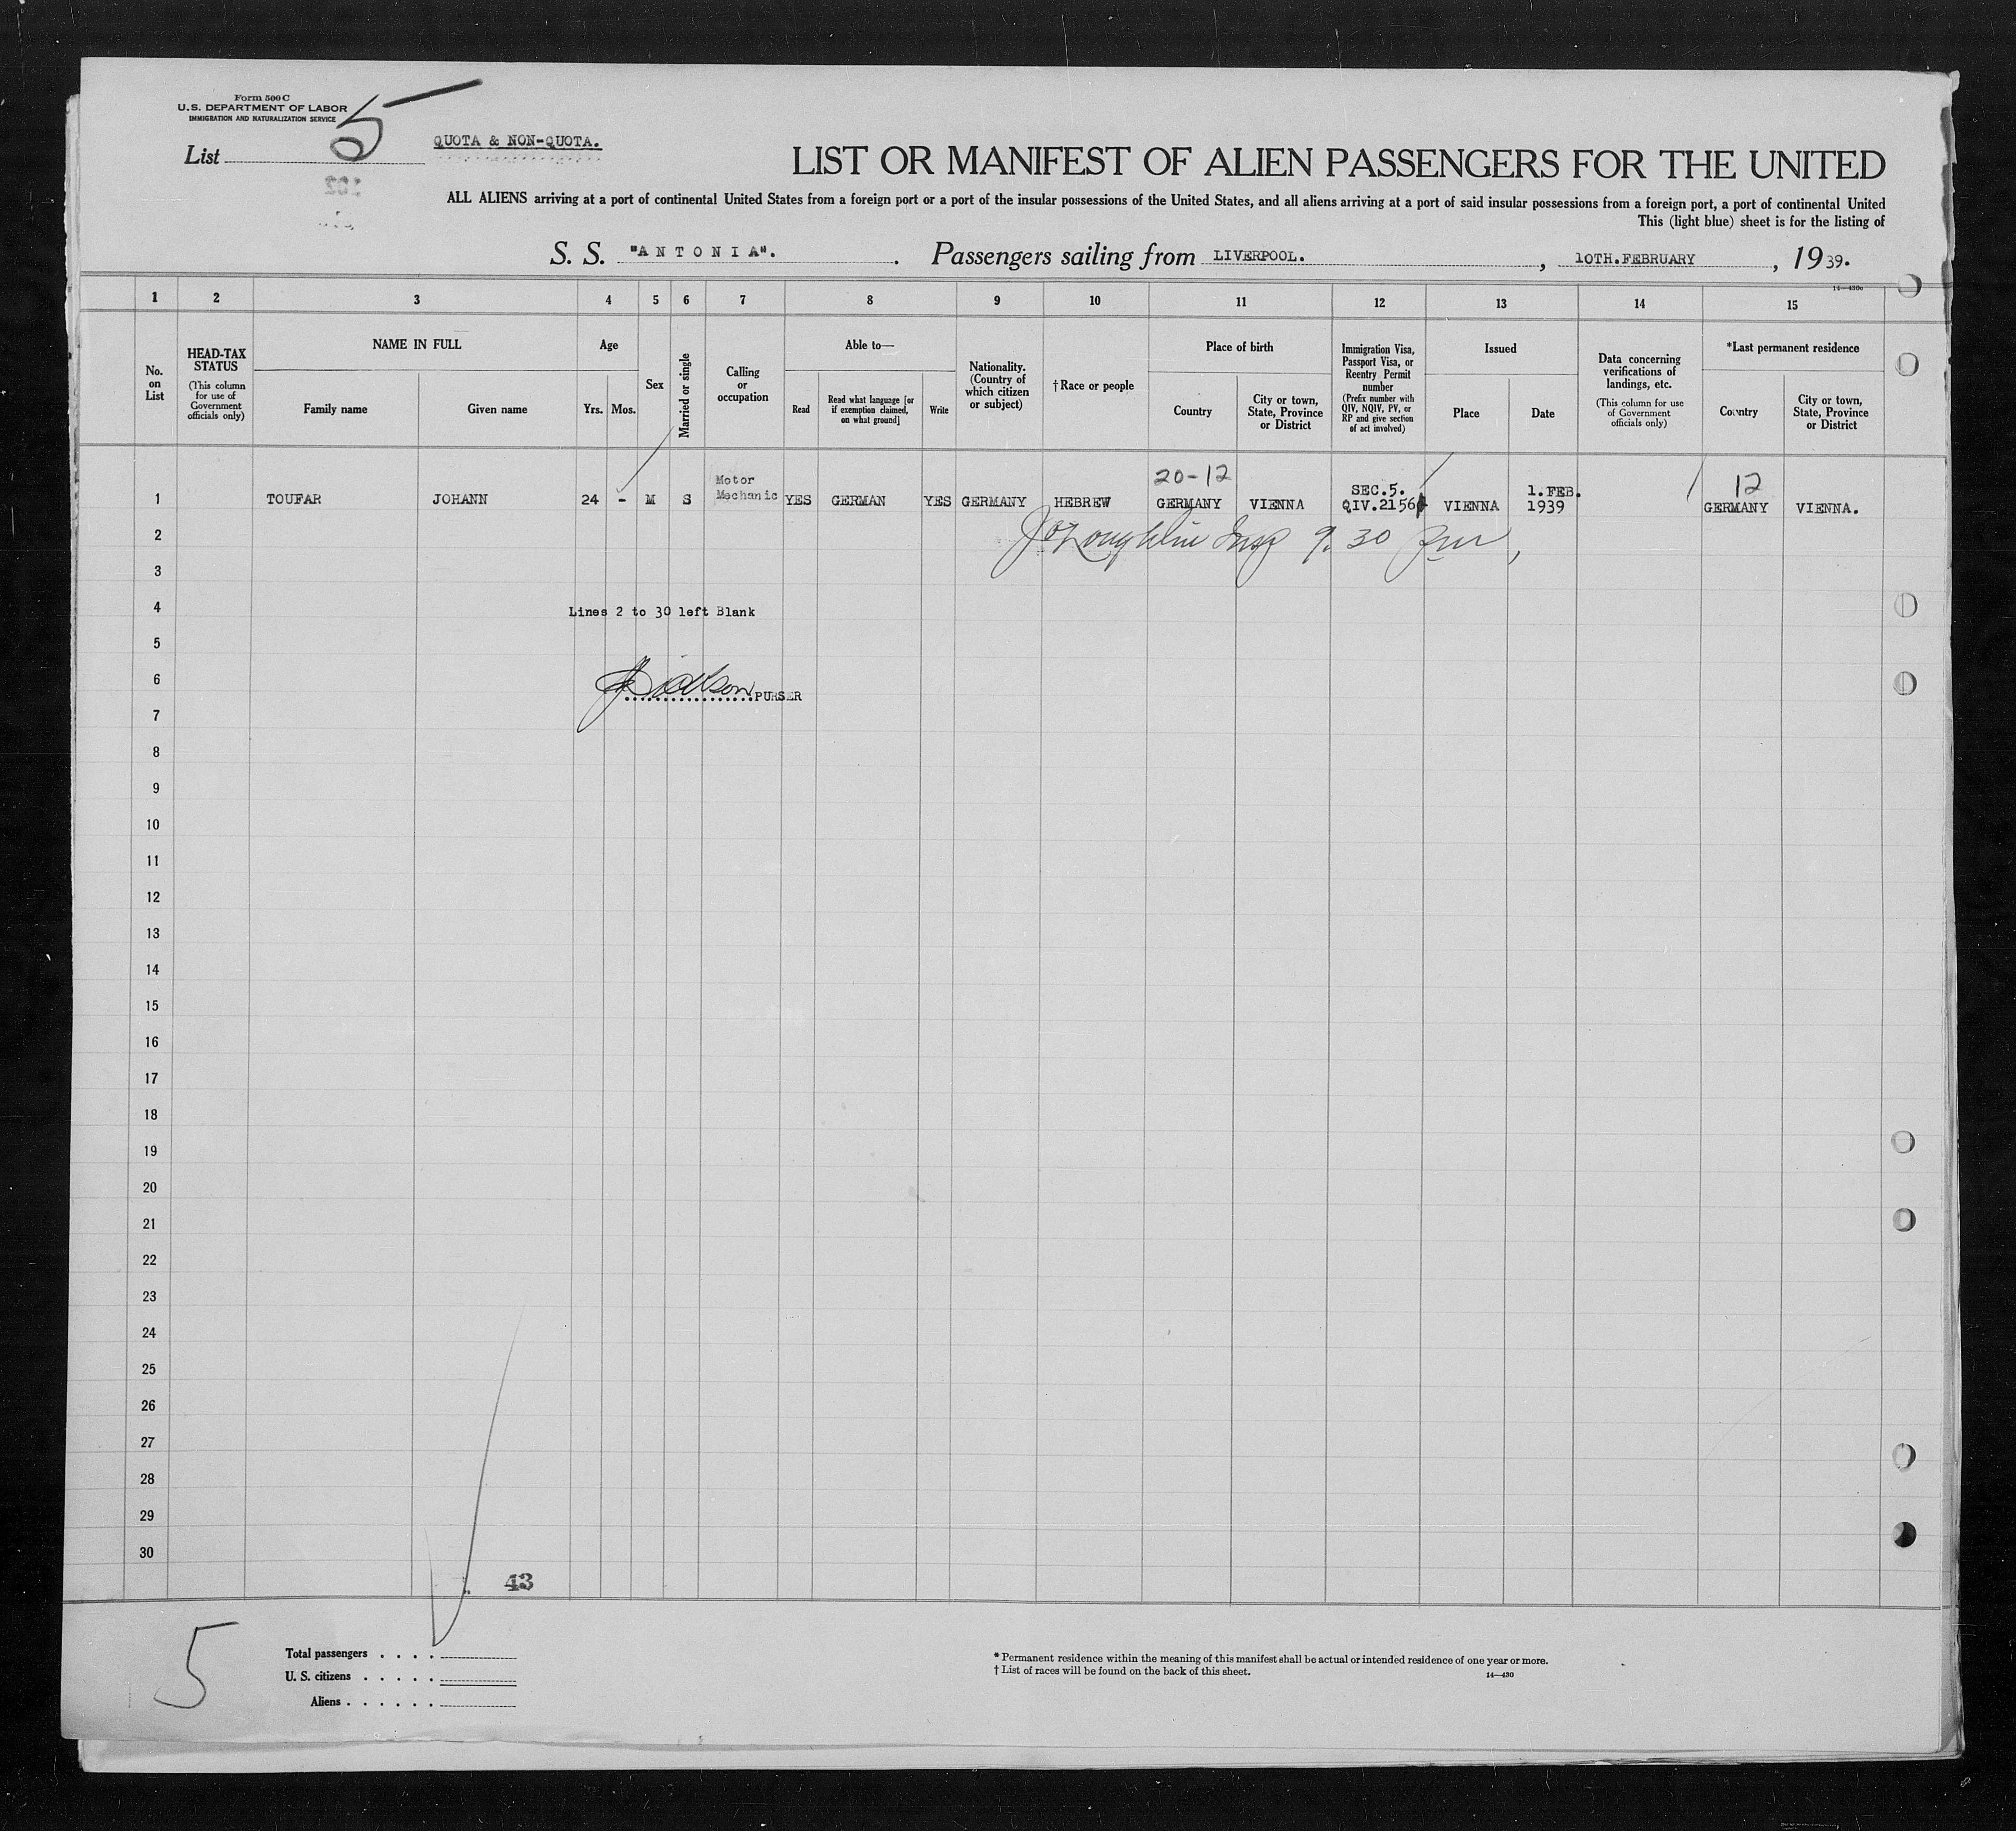 Form 500 C
U.S. DEPARTMENT OF LABOR
IMMIGRATION AND NATURALIZATION SERVICE
List 5
QUOTA & NON-QUOTA.
LIST OR MANIFEST OF ALIEN PASSENGERS FOR THE UNITED
ALL ALIENS arriving at a port of continental United States from a foreign port or a port of the insular possessions of the United States, and all aliens arriving at a port of said insular possessions from a foreign port, a port of continental United
This (light blue) sheet is for the listing of
S. S. "ANTONIA". Passengers sailing from LIVERPOOL., 10TH.FEBRUARY, 1939.
14—430c
1 2 3 4 5 6 7 8 9 10 11 12 13 14 15
No. on List
HEAD-TAX STATUS
(This column for use of Government officials only)
NAME IN FULL
Family name
Given name
Age
Yrs. Mos.
Sex
Married or single
Calling or occupation
Able to—
Read
Read what language [or if exemption claimed, on what ground]
Write
Nationality. (Country of which citizen or subject)
†Race or people
Place of birth
Country
City or town, State, Province or District
Immigration Visa, Passport Visa, or Reentry Permit number
(Prefix number with QIV, NQIV, PV, or RP and give section of act involved)
Issued
Place
Date
Data concerning verifications of landings, etc.
(This column for use of Government officials only)
*Last permanent residence
Country
City or town, State, Province or District
20-12
12
1 TOUFAR JOHANN 24 - M S Motor Mechanic YES GERMAN YES GERMANY HEBREW GERMANY VIENNA SEC.5. QIV.2156 VIENNA 1.FEB. 1939 GERMANY VIENNA.
2 Insp 9.30 pm
3
4 Lines 2 to 30 left Blank
5
6 PURSER
7
8
9
10
11
12
13
14
15
16
17
18
19
20
21
22
23
24
25
26
27
28
29
30
43
5
Total passengers . . . .
U. S. citizens . . . . .
Aliens . . . . . .
* Permanent residence within the meaning of this manifest shall be actual or intended residence of one year or more.
† List of races will be found on the back of this sheet.
14—430